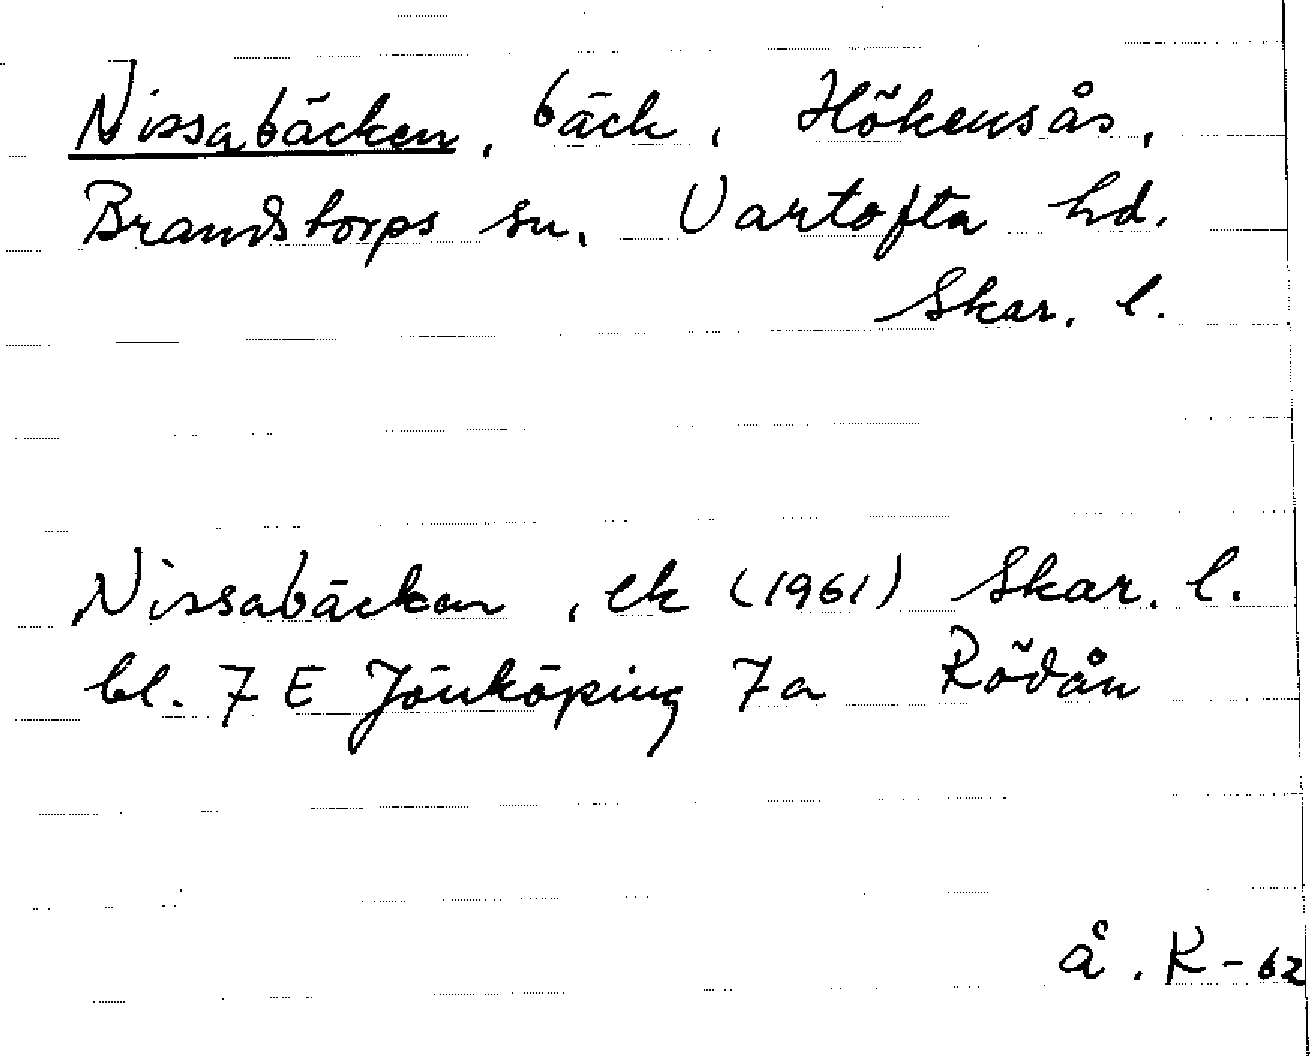 Nissabäcken, bäck, Hökensås,
Brandstorps sn. Vartofta hd.
Skar. l.
Nissabäcken, ek (1961) Skar. l.
bl. 7 E Jönköping 7a Rödån
Å. K-62